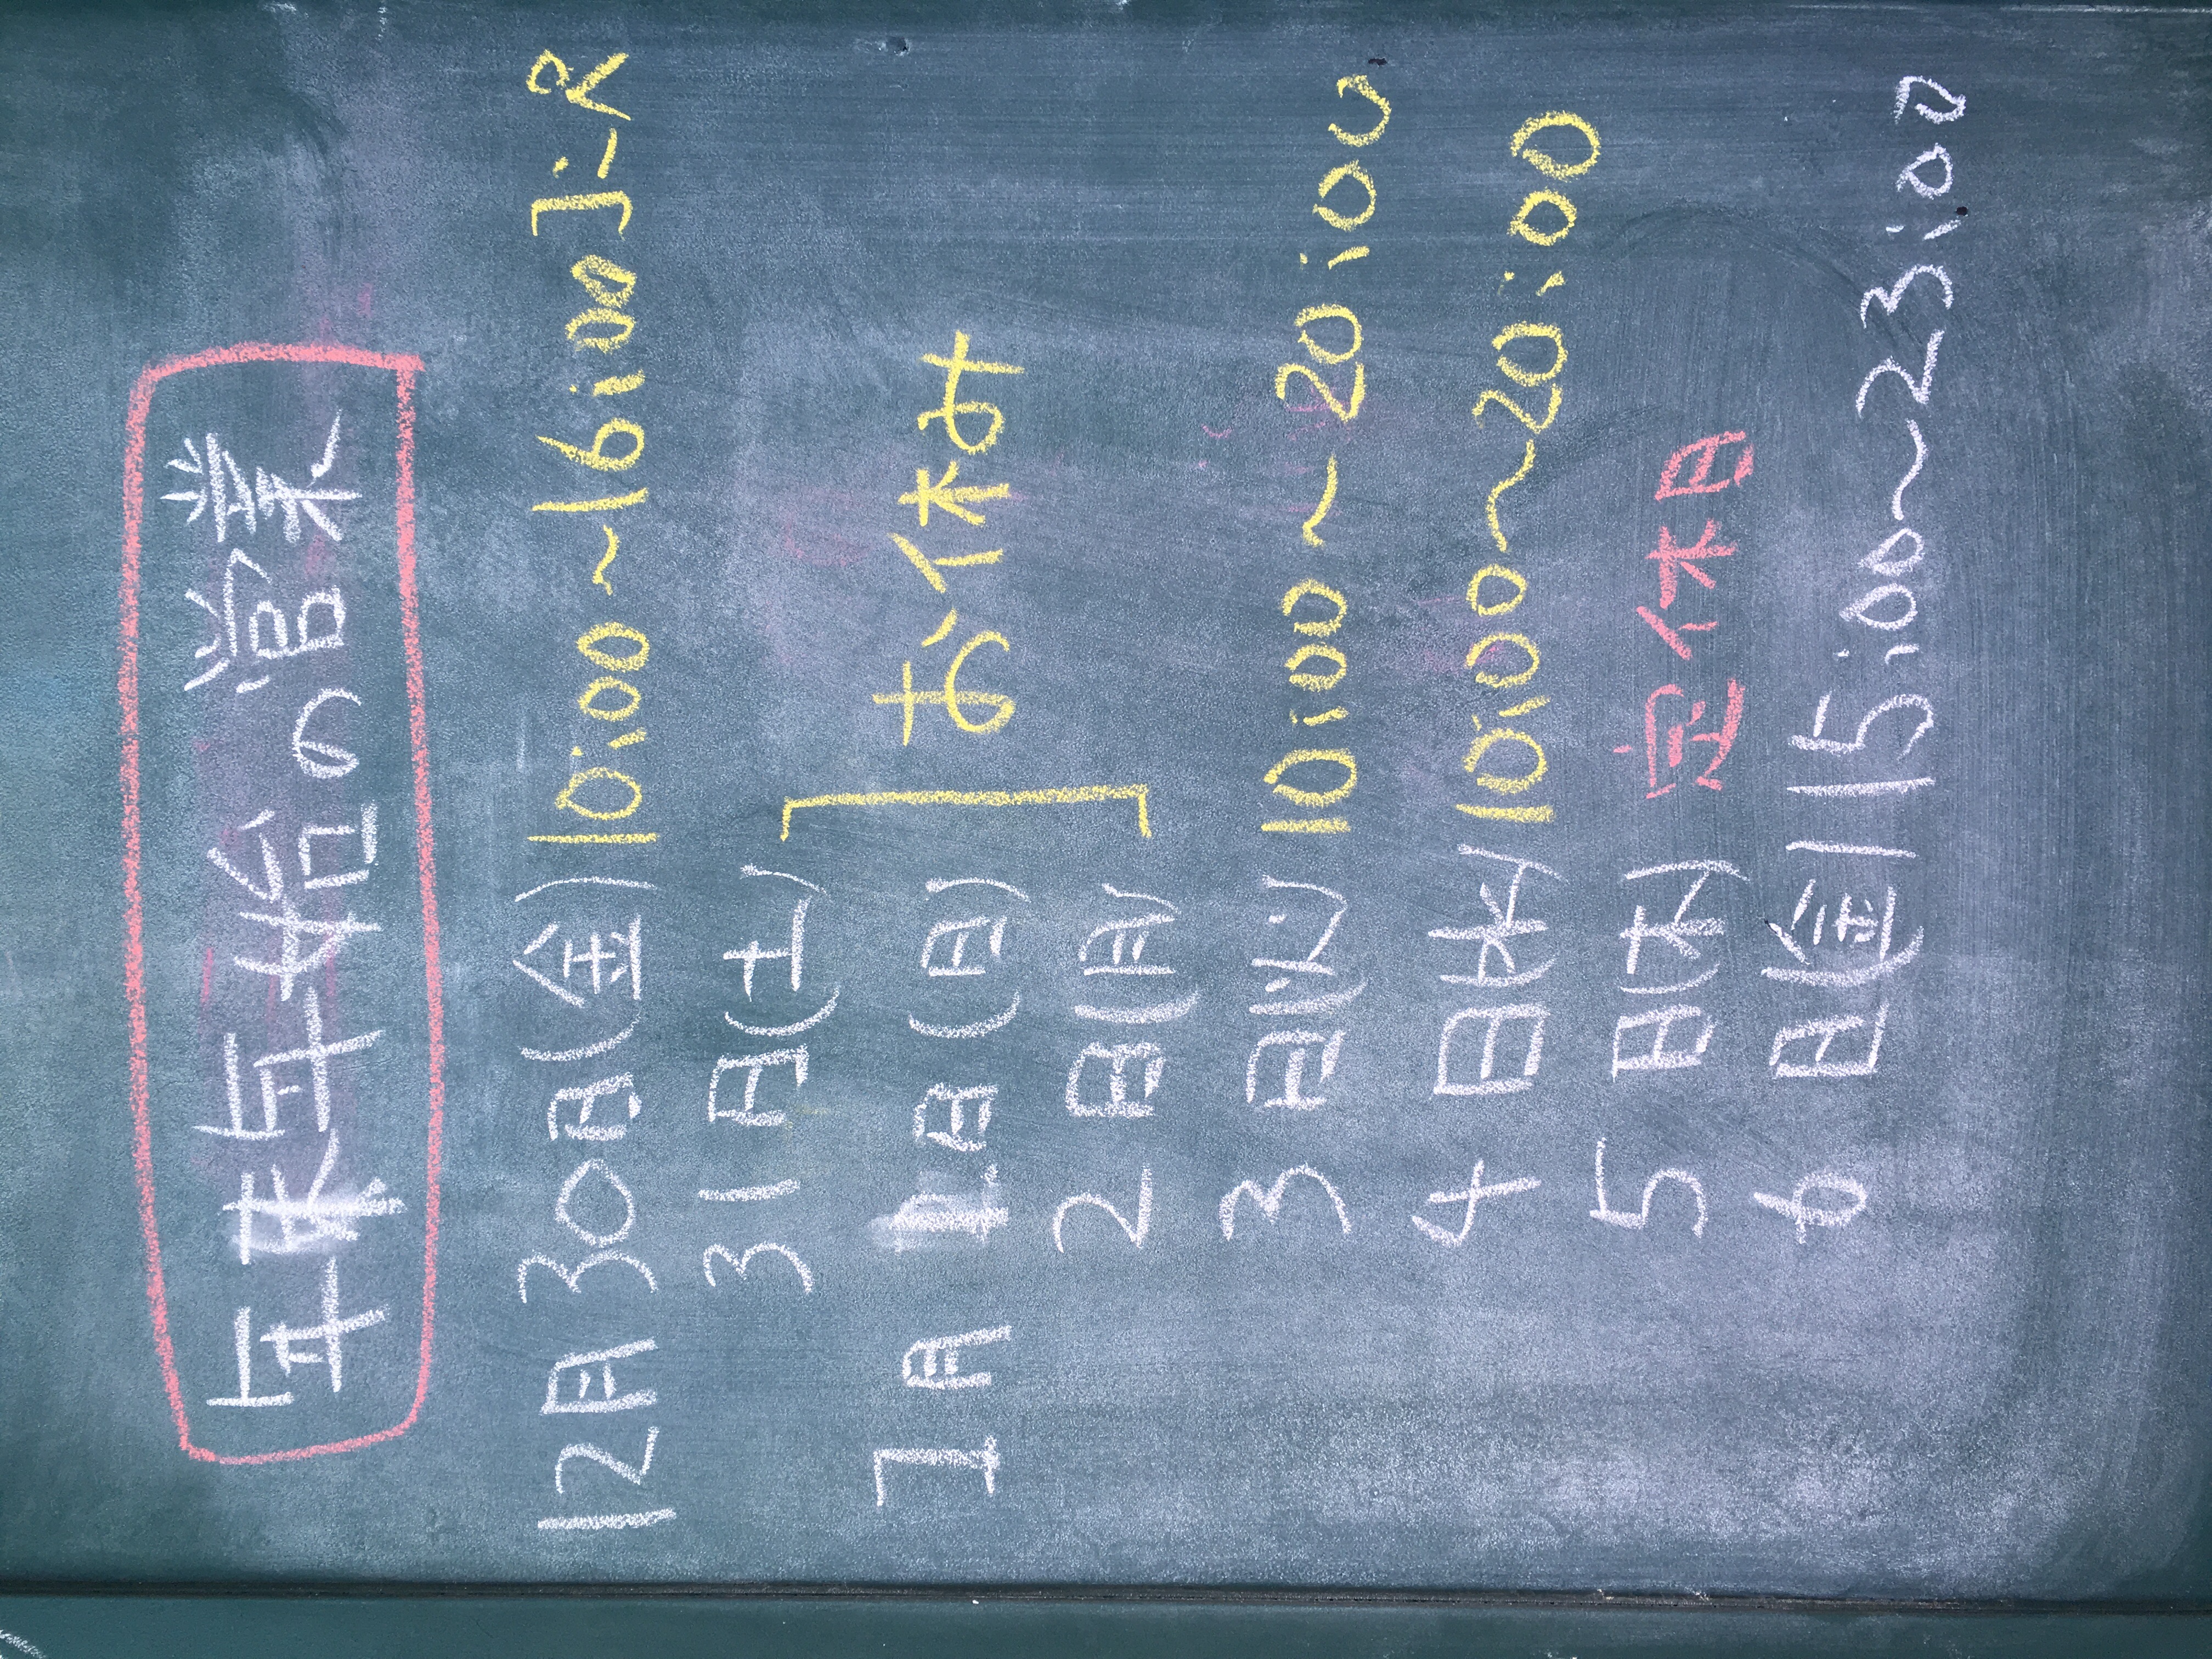 年末年始の営業
12月30日(金) 10:00~16:00ヨーR
31日(土)
お休み
1月1日(日)
2日(月)
3日(火) 10:00~20:00
4日(水) 10:00~20:00
5日(木) 定休日
6日(金) 15:00~23:00